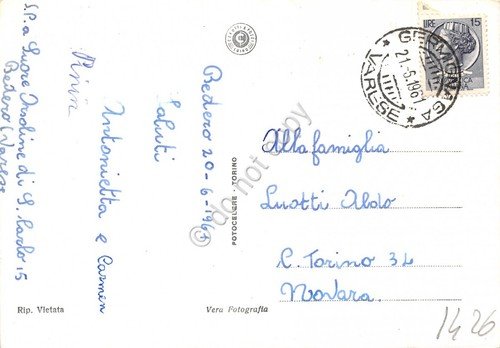 S.P.a Suore Orsoline di S. Carlo 15
Bedero (Varese
Bedero 20-6-1961
Saluti
Antonietta e Carmen
Pinin
Rip. Vietata
Vera Fotografia
FOTOCELERE - TORINO
do not copy
LIRE 15
GERMIGNAGA
21.6.1961
* VARESE *
Alla famiglia
Luotti Aldo
C. Torino 34
Novara.
1426